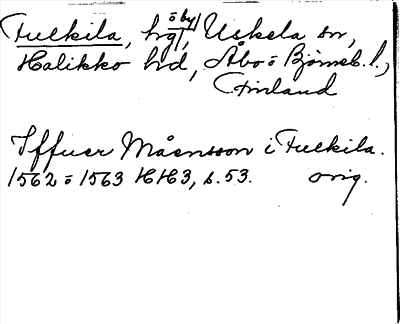 Fulkila, hrg o by, Uskela sn,
Halikko hd, Åbo o Björneb. l.,
Finland
Iffuer Månsson i Fulkila.
1562 o 1563 HH3, s. 53. orig.